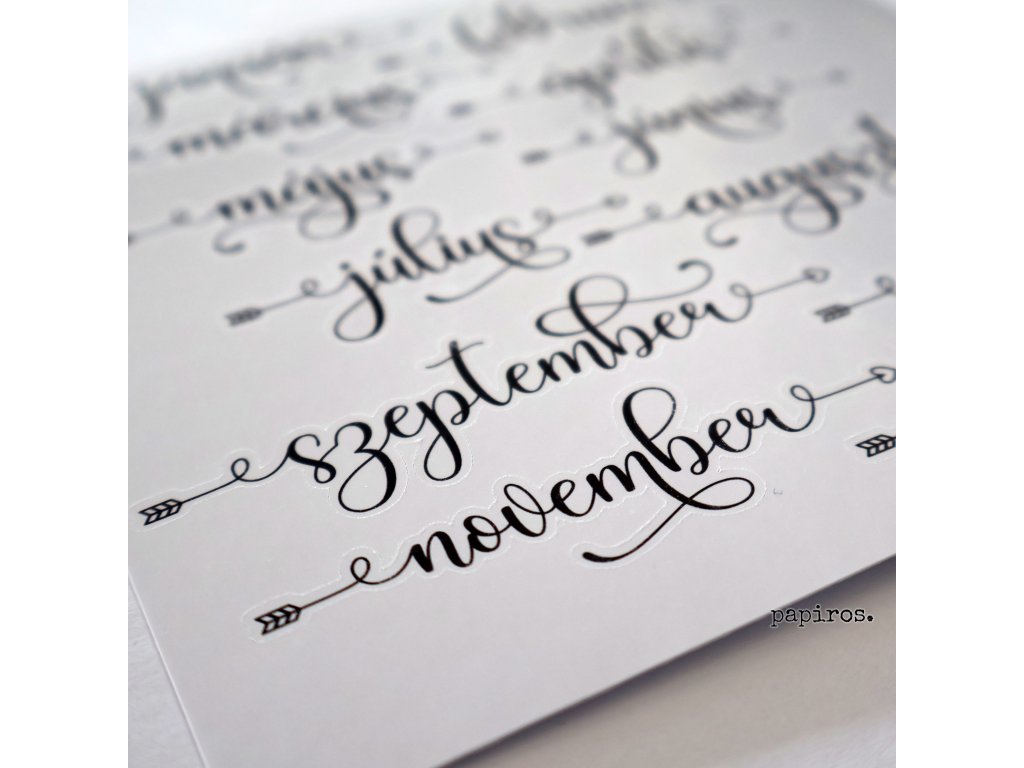 március április
május június
július augusztus
szeptember
november
papiros.